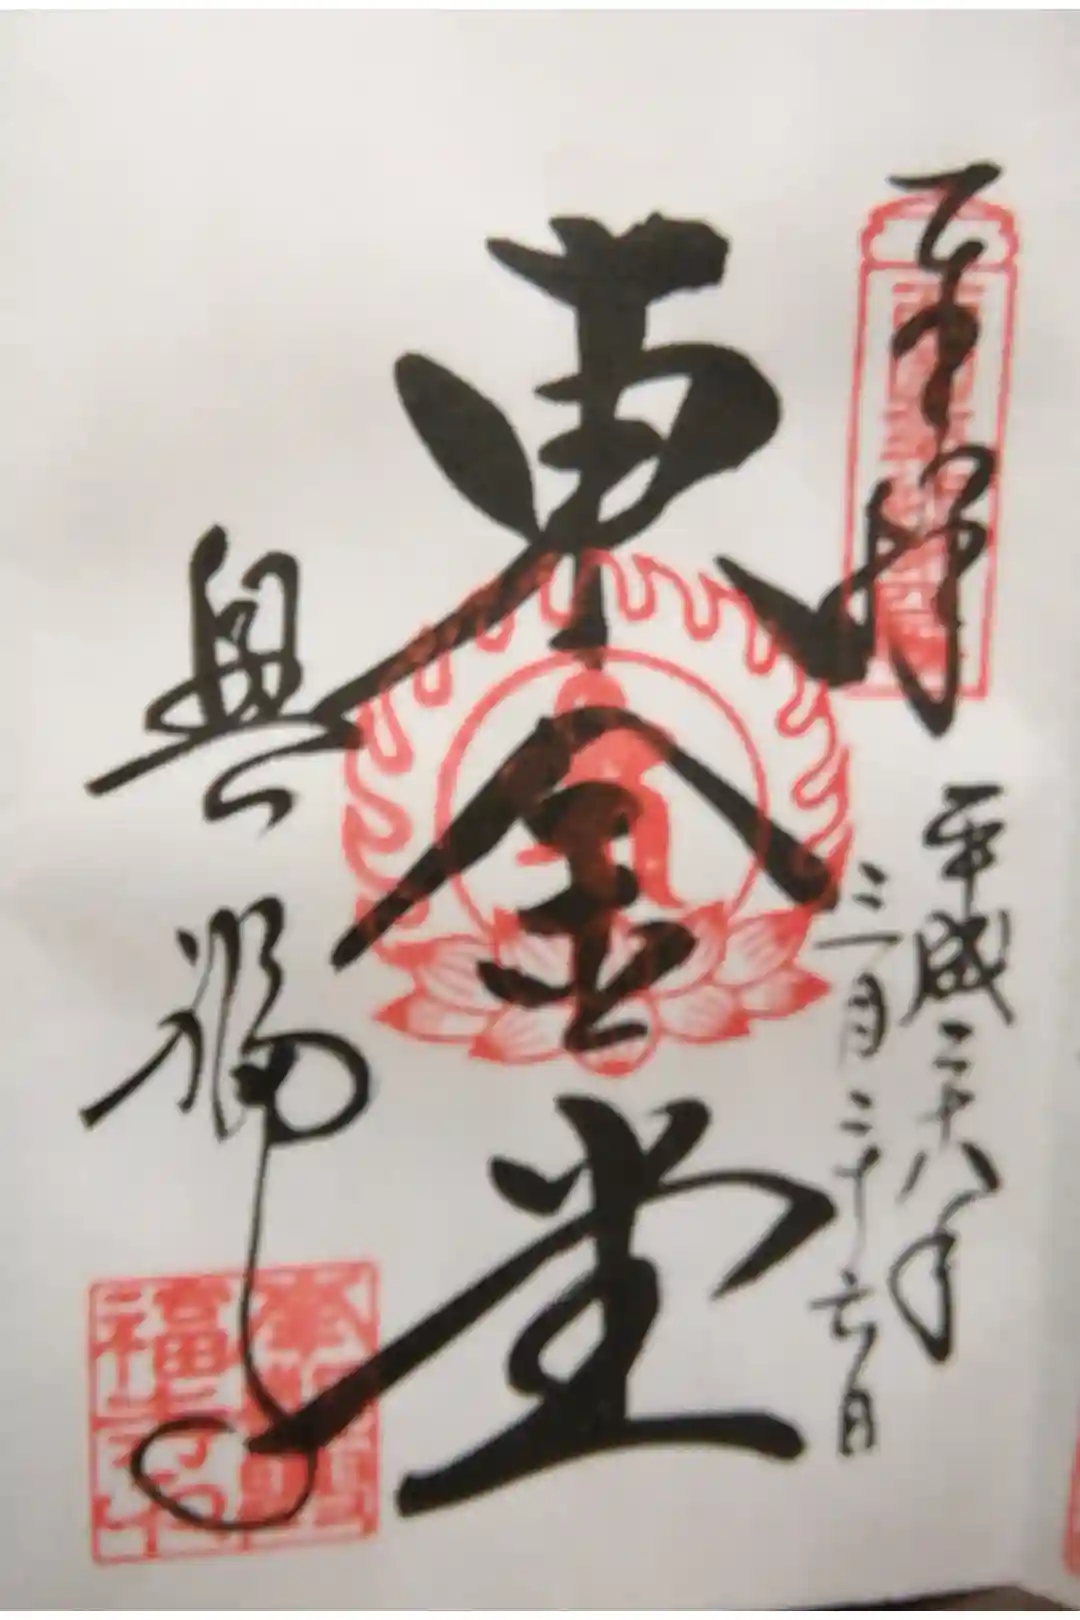 奉拝
平成二十八年
三月二十六日
東金堂
興福寺